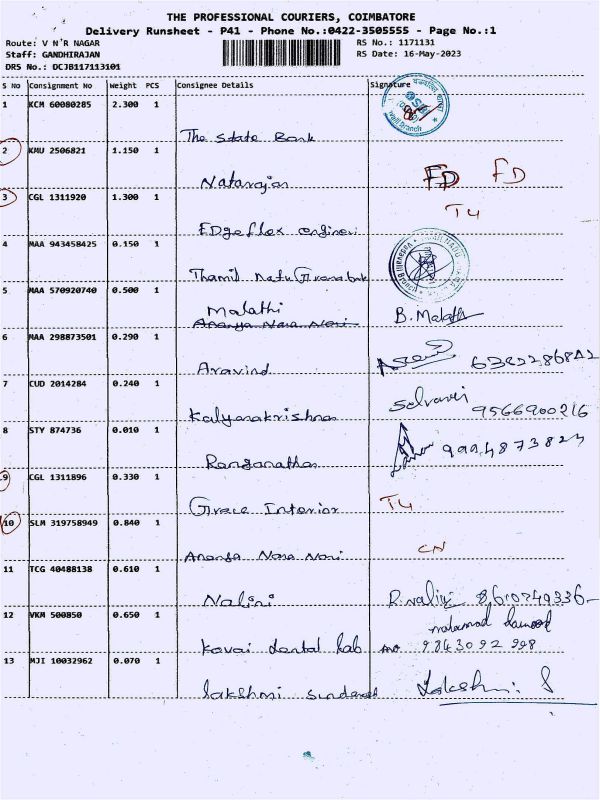 THE PROFESSIONAL COURIERS, COIMBATORE
Delivery Runsheet - P41 - Phone No.:0422-3505555 - Page No.:1
Route: V N'R NAGAR
Staff: GANDHIRAJAN
DRS No.: DCJB117113101
RS No.: 1171131
RS Date: 16-May-2023
S No Consignment No Weight PCS Consignee Details Signature
1 KCM 60080285 2.300 1
The State Bank
2 KMU 2506821 1.150 1
Natarajan FD FD
3 CGL 1311920 1.300 1 T4
EDgeflex engineri
4 MAA 943458425 0.150 1
Thamil Natu
5 MAA 570920740 0.500 1
Malathi B. Malath
Ananya Nara Novi
6 MAA 298873501 0.290 1
Aravind
7 CUD 2014284 0.240 1
Kalyanakrishnan Selvavei 9566900216
8 STY 874736 0.010 1
Ranganathan 9994873824
9 CGL 1311896 0.330 1
Grace Interior T4
10 SLM 319758949 0.840 1
Ananya Nara Novi CN
11 TCG 40488138 0.610 1
Nalini R. Naliy 8610749336
12 VKM 500850 0.650 1
Kovai dental lab 9843092998
13 MJI 10032962 0.070 1
lakshmi sundaresh Lakshmi. S